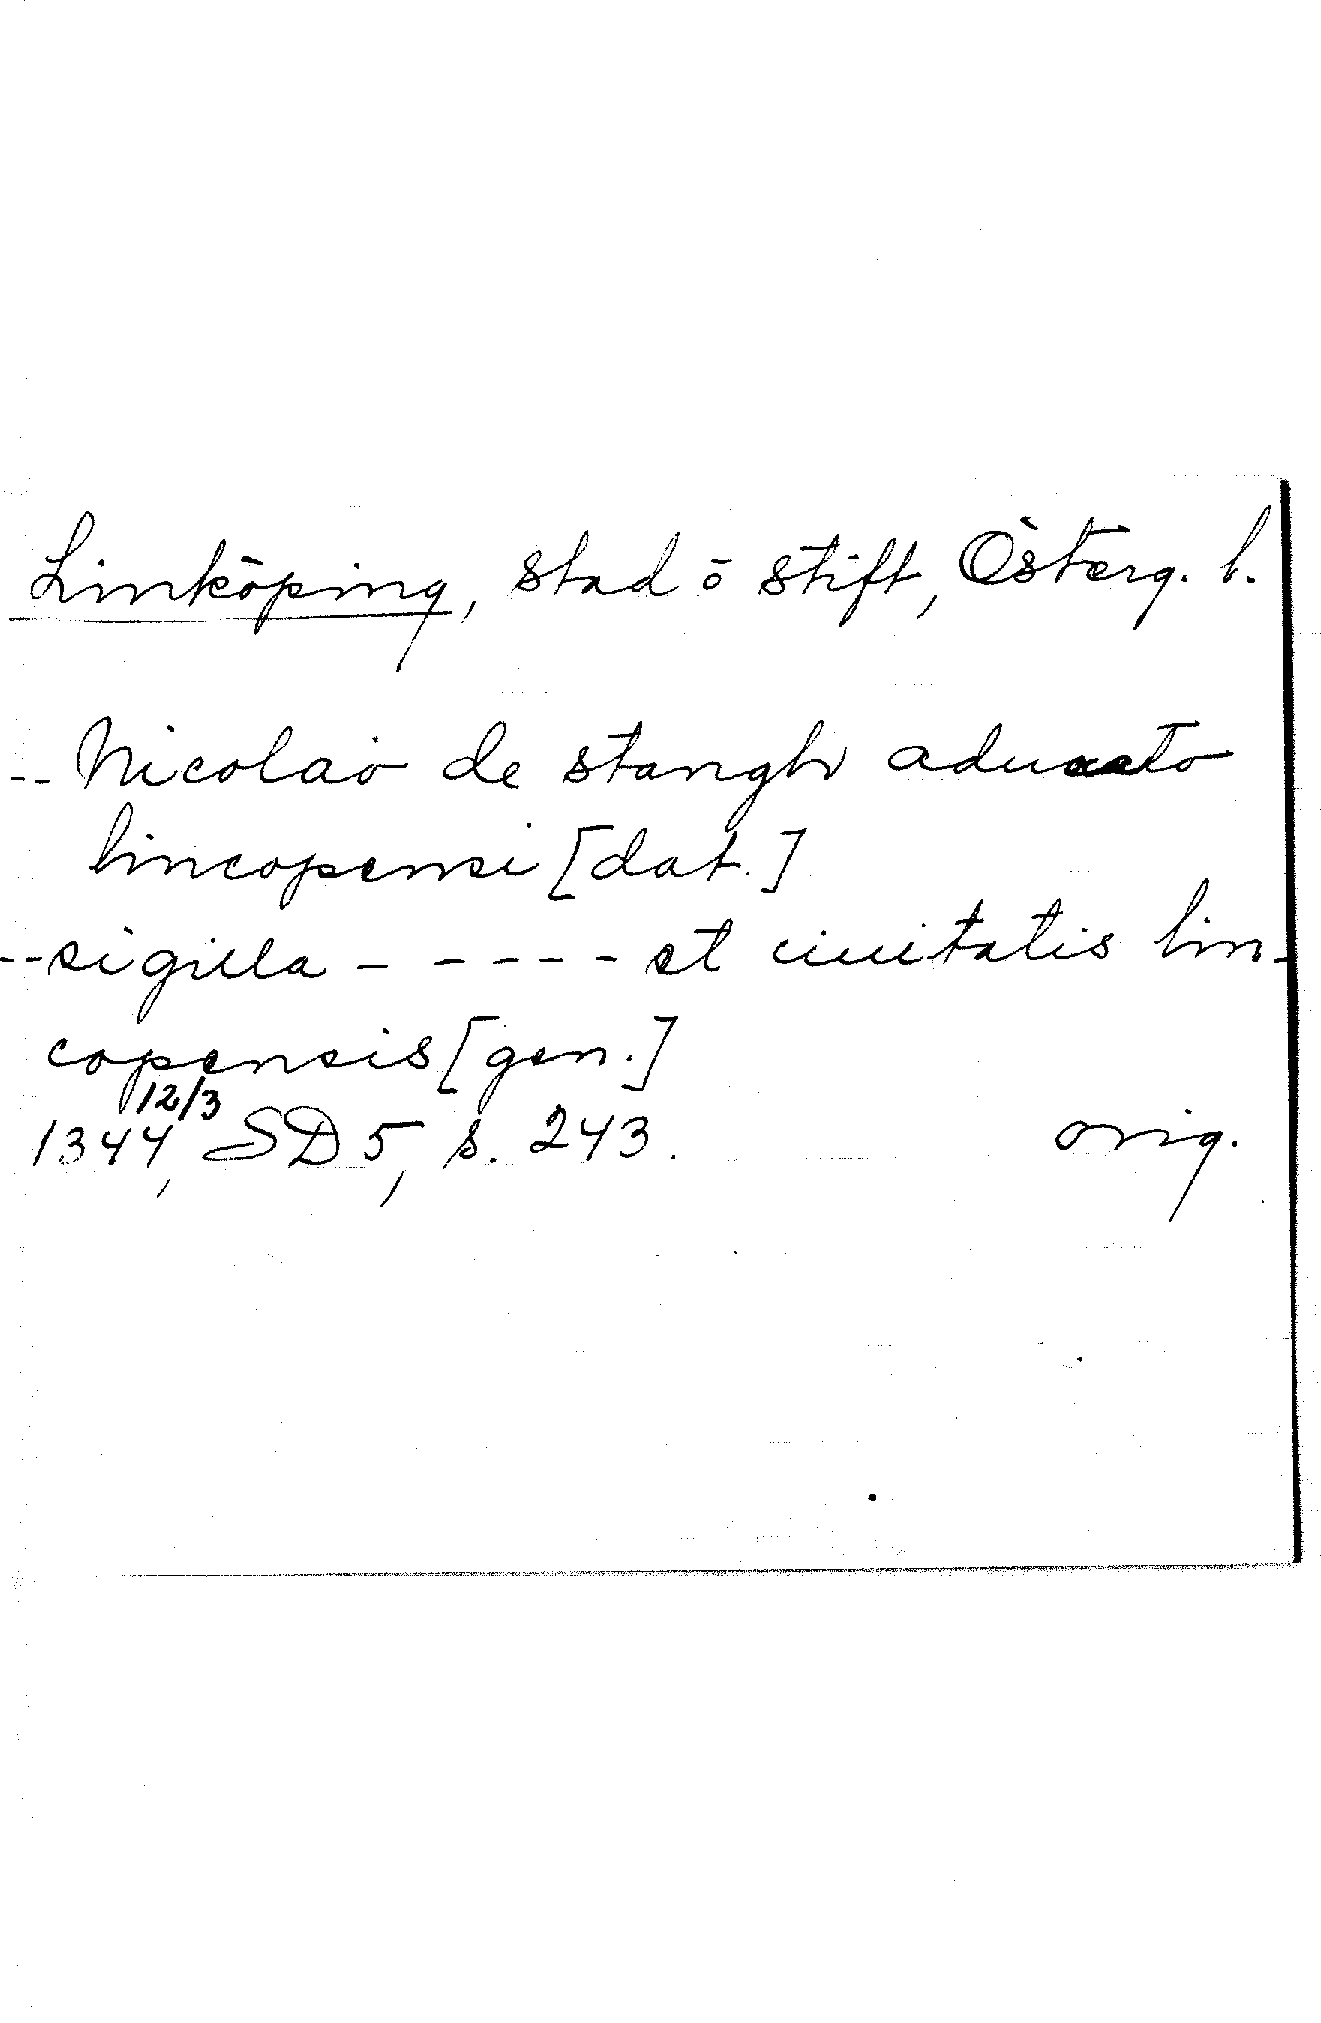 Linköping, stad o stift, Österg. l.
-- Nicolao de stangh aduocato
lincopensi [dat.]
-- sigilla - - - - - et ciuitatis lin-
copensis [gen.]
1344 12/3, SD 5, s. 243. orig.